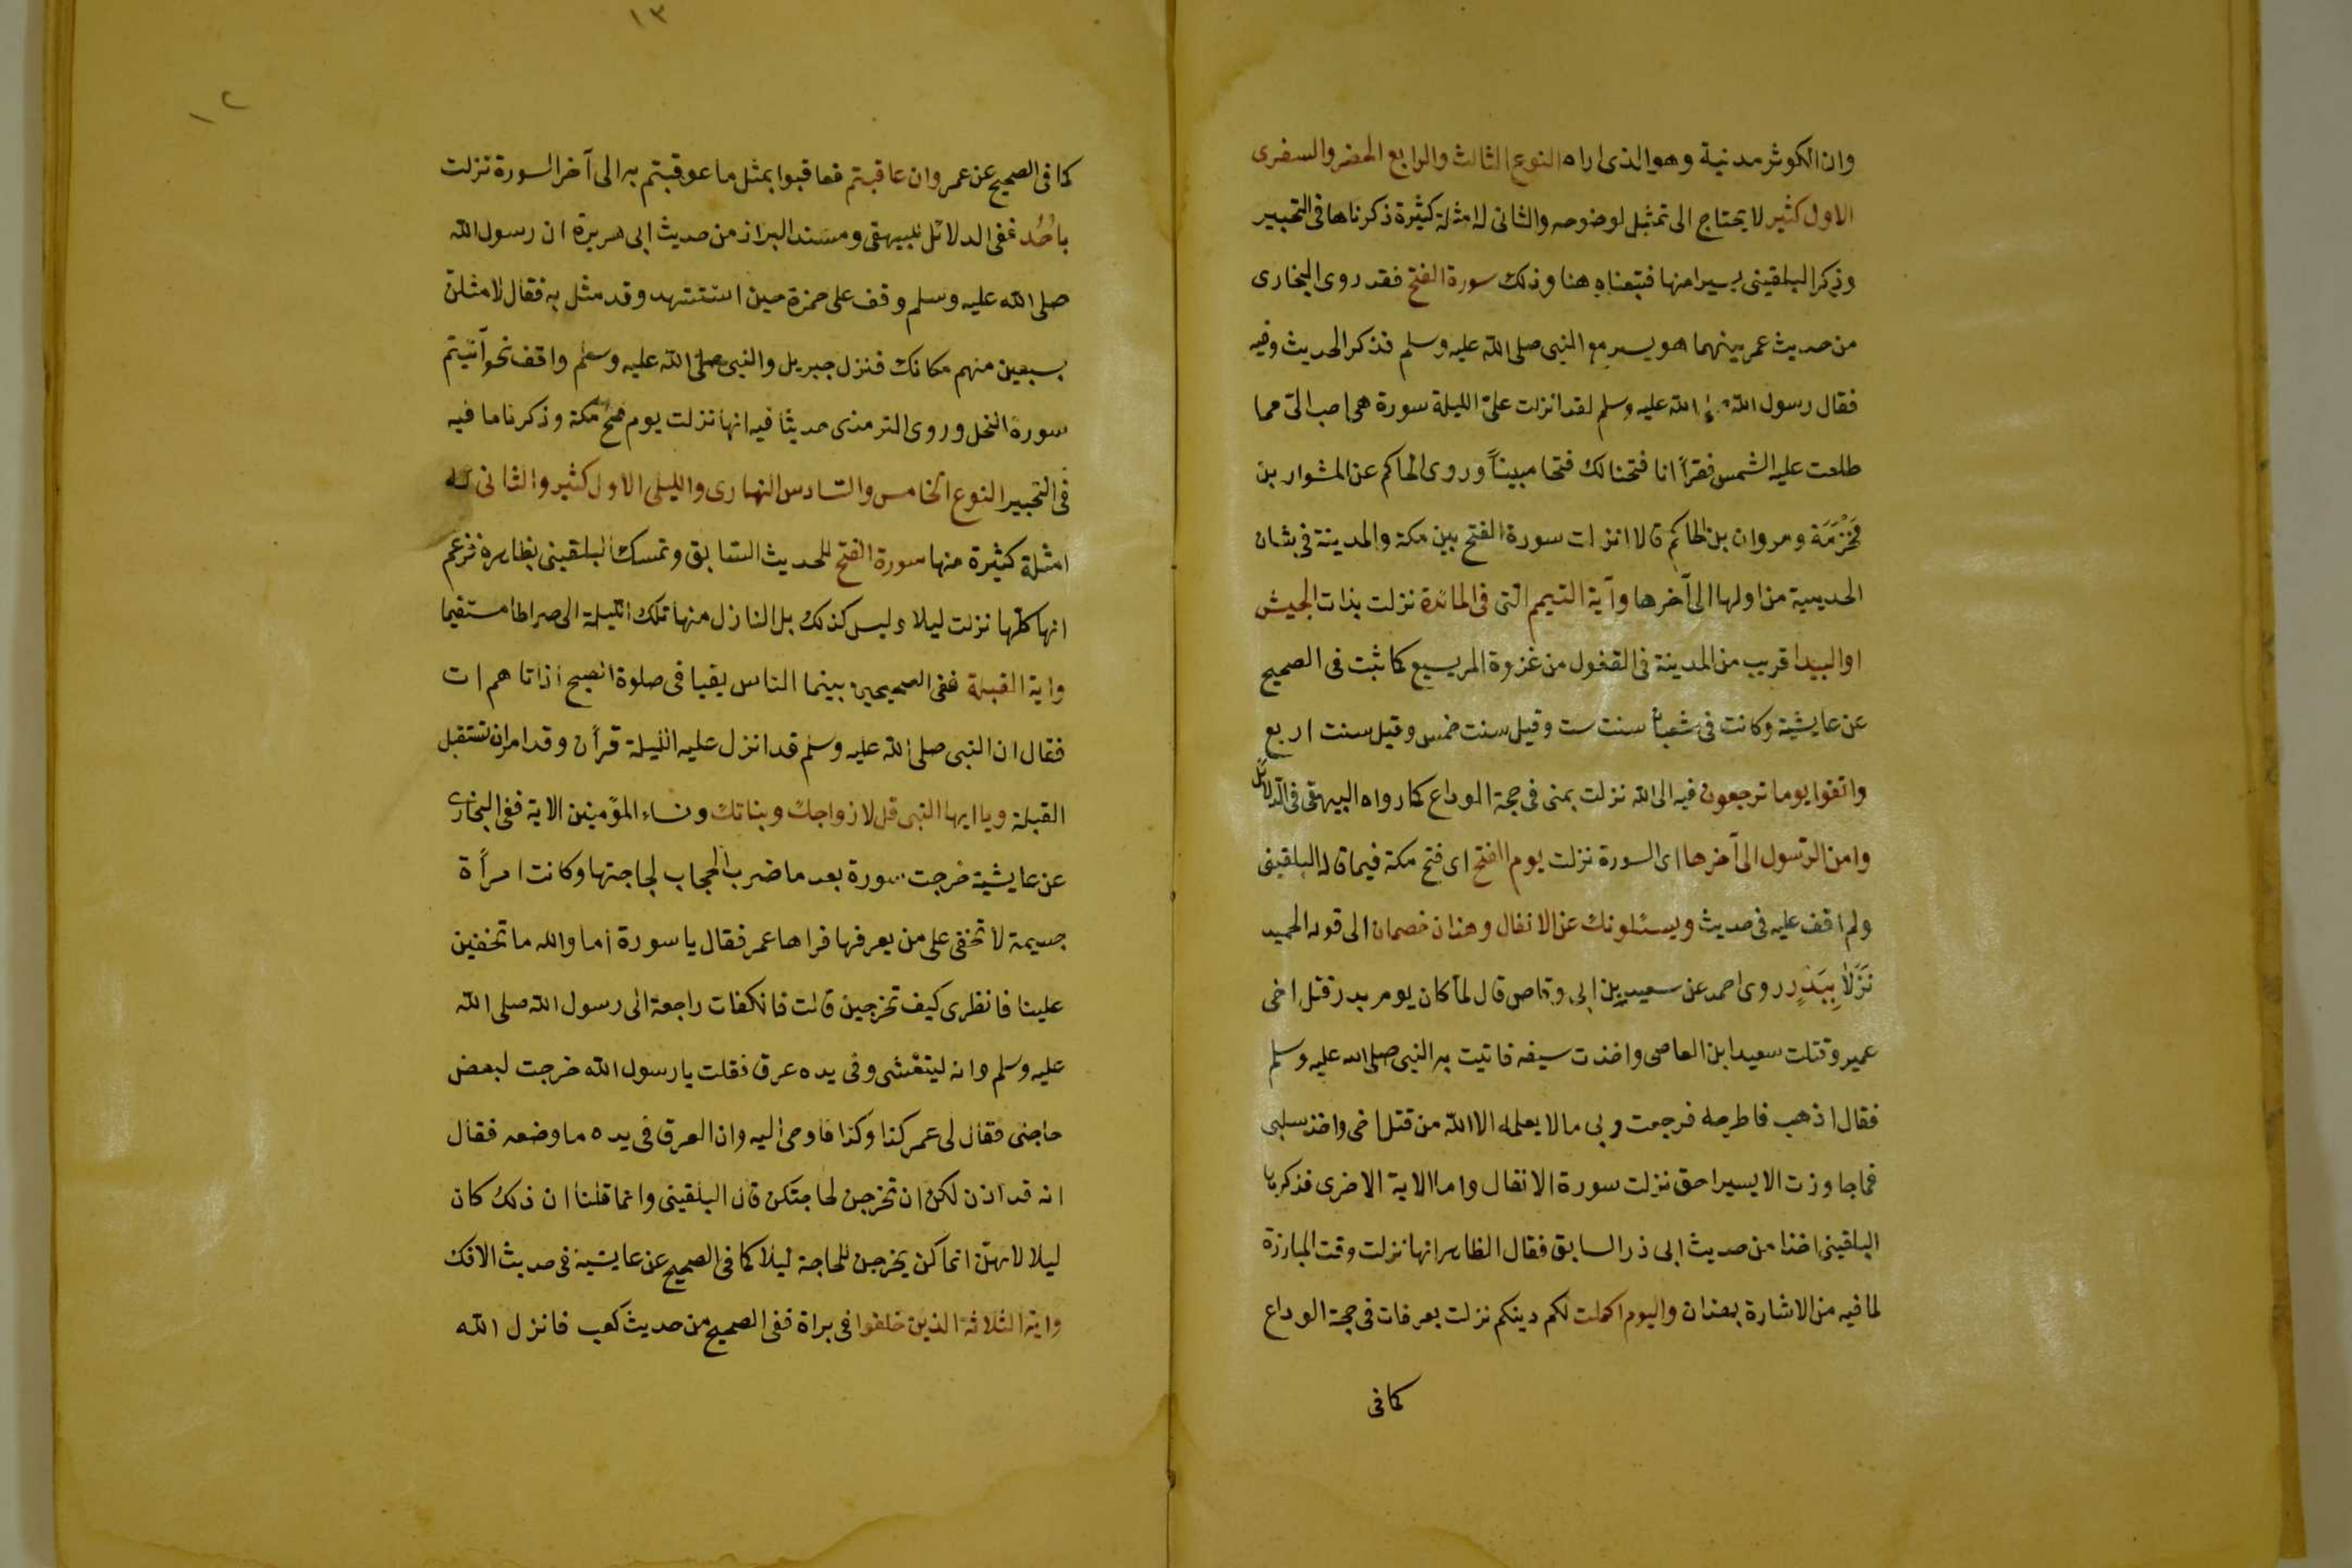 وان الكوثر مدنية وهو الذى اراه النوع الثالث والرابع الحضرى والسفرى
الاول كثير لا يحتاج الى تمثيل لوضوحه والثانى له امثلة كثيرة ذكرناها فى التحبير
وذكر البلقينى يسيرا منها فتبعناه هنا وذلك سورة الفتح فقد روى البخارى
من حديث عمر بينهما هو يسير مع النبى صلى الله عليه وسلم فذكر الحديث وفيه
فقال رسول الله صلى الله عليه وسلم لقد انزلت علىّ الليلة سورة هى احب الىّ مما
طلعت عليه الشمس فقرأ انا فتحنا لك فتحا مبيناً وروى الحاكم عن المشوار بن
مَخْرَمَة ومروان بن الحاكم قالا انزلت سورة الفتح بين مكة والمدينة فى شان
الحديبية من اولها الى آخرها وآية التيمم التى فى المائدة نزلت بذات الجيش
او البيدا قريب من المدينة فى القفول من غزوة المريسيع كما ثبت فى الصحيح
عن عايشية وكانت فى شعبان سنت ست وقيل سنت خمس وقيل سنت اربع
واتقوا يوما ترجعون فيه الى الله نزلت بمنى فى حجة الوداع كما رواه البيهقى فى الدلائل
وامن الرّسول الى آخرها اى السورة نزلت يوم الفتح اى فتح مكة فيما قاله البلقينى
ولم اقف عليه فى حديث ويسئلونك عن الانفال وهذان خصمان الى قوله الحميد
نَزَلَا بِبَدْرٍ روى احمد عن سعيد بن ابى وقاص قال لما كان يوم بدر قتل اخى
عمير وقتلت سعيد ابن العاصى واخذت سيفه فاتيت به النبى صلى الله عليه وسلم
فقال اذهب فاطرحه فرجعت وبى مالا يعلمه الا الله من قتل اخى واخذ سلبى
فما جاوزت الا يسيرا حتى نزلت سورة الانفال واما الاية الاخرى فذكرها
البلقينى اخذا من حديث ابى ذر السابق فقال الظاهر انها نزلت وقت المبارزة
لما فيه من الاشارة بهذان واليوم اكملت لكم دينكم نزلت بعرفات فى حجة الوداع
كما فى
١٣
١٢
كما فى الصحيح عن عمر وان عاقبتم فعاقبوا بمثل ما عوقبتم به الى آخر السورة نزلت
باُحُد ففى الدلائل للبيهقى ومسند البزاز من حديث ابى هريرة ان رسول الله
صلى الله عليه وسلم وقف على حمزة حين استشهد وقد مثل به فقال لامثلنّ
بسبعين منهم مكانك فنزل جبريل والنبى صلى الله عليه وسلم واقف نحواتيتم
سورة النحل وروى الترمذى حديثا فيه انها نزلت يوم فتح مكة وذكرنا ما فيه
فى التحبير النوع الخامس والسّادس النهارى والليلى الاول كثير والثانى له
امثلة كثيرة منها سورة الفتح للحديث السّابق وتمسك البلقينى بظاهره فزعم
انها كلها نزلت ليلا وليس كذلك بل النازل منها تلك الليلة الى صراطا مستقيما
واية القبلة ففى الصحيحين بينما الناس يقبا فى صلوة الصبح اذاتاهم ات
فقال ان النبى صلى الله عليه وسلم قد انزل عليه الليلة قرأن وقد امران تستقبل
القبلة ويا ايها النبى قل لازواجك وبناتك ونساء المؤمنين الاية ففى البخارى
عن عايشية خرجت سورة بعد ما ضرب الحجاب لحاجتها وكانت امرأة
جسيمة لا تخفى على من يعرفها فراها عمر فقال يا سورة اما والله ما تخفين
علينا فانظرى كيف تخرجين قالت فانكفات راجعة الى رسول الله صلى الله
عليه وسلم وانه ليتعشى وفى يده عرق فقلت يارسول الله خرجت لبعض
حاجتى فقال لى عمر كذا وكذا فاوحى اليه وان العرق فى يده ما وضعه فقال
انه قد اذن لكن ان تخرجن لحاجتكن قال البلقينى وانما قلنا ان ذلك كان
ليلا لانهنّ انما كن يخرجن للحاجة ليلا كما فى الصحيح عن عايشية فى حديث الافك
واية الثلاثة الذين خلفوا فى براة ففى الصحيح من حديث كعب فانزل الله